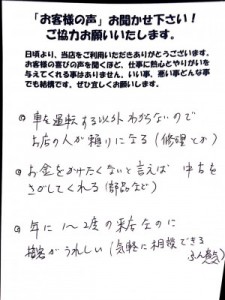 「お客様の声」お聞かせ下さい！
ご協力お願いいたします。
日頃より、当店をご利用いただきありがとうございます。
お客様の喜びの声を聞くほど、仕事に熱心とやりがいを
与えてくれる事はありません。いい事、悪い事どんな事
でも結構です。ぜひ宜しくお願いします。
◎ 車を運転する以外わからないので
お店の人が頼りになる（修理とか）
◎ お金をかけたくないと言えば 中古を
さがしてくれる（部品など）
◎ 年に1~2度の来店なのに
接客がうれしい（気軽に相談できる
ふん囲気）